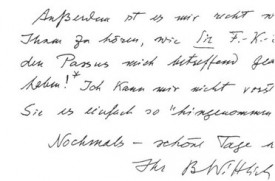 Außerdem ist es mir nicht m
Ihnen zu hören, wie Sie F.-K.-
den Passus mich betreffend gea
haben!* Ich kann mir nicht vorst
Sie es einfach so "hingenommen
Nochmals – schöne Tage n
Ihr B